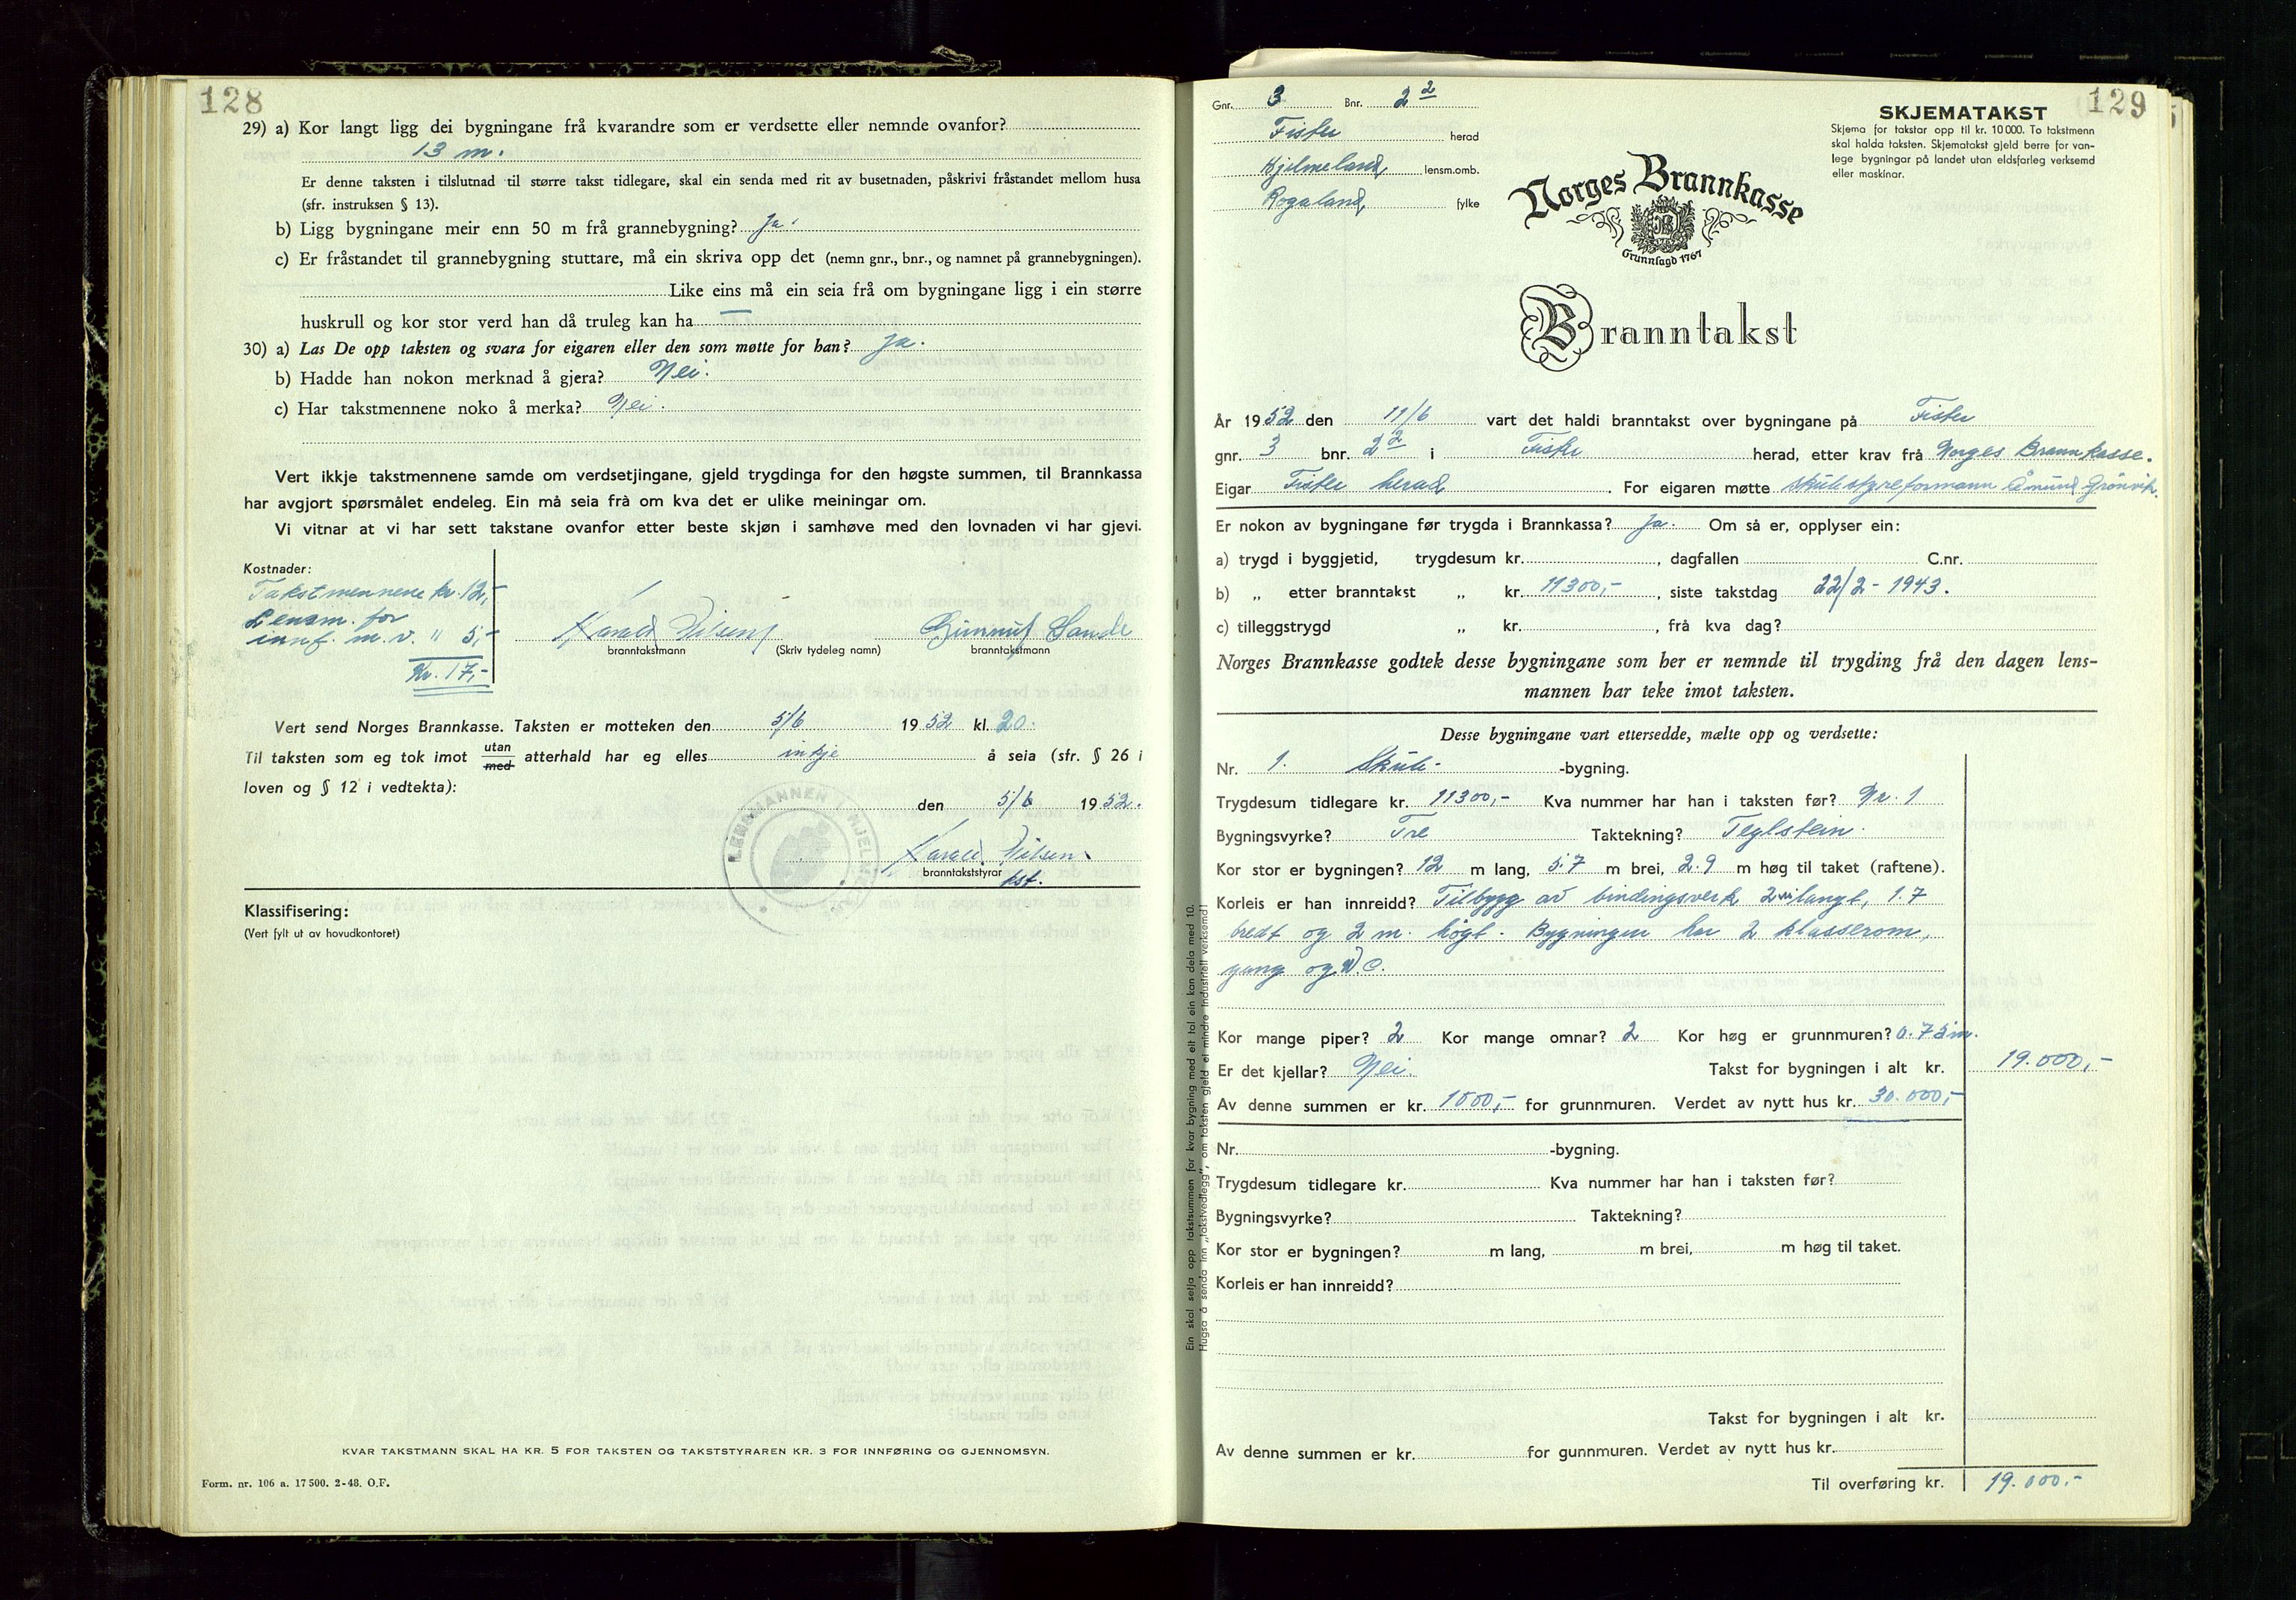 128
29) a) Kor langt ligg dei bygningane frå kvarandre som er verdsette eller nemnde ovanfor?
13 m.
Er denne taksten i tilslutnad til større takst tidlegare, skal ein senda med rit av busetnaden, påskrivi fråstandet mellom husa
(sfr. instruksen § 13).
b) Ligg bygningane meir enn 50 m frå grannebygning? Ja.
c) Er fråstandet til grannebygning stuttare, må ein skriva opp det (nemn gnr., bnr., og namnet på grannebygningen).
Like eins må ein seia frå om bygningane ligg i ein større
huskrull og kor stor verd han då truleg kan ha —
30) a) Las De opp taksten og svara for eigaren eller den som møtte for han? Ja.
b) Hadde han nokon merknad å gjera? Nei.
c) Har takstmennene noko å merka? Nei.
Vert ikkje takstmennene samde om verdsetjingane, gjeld trygdinga for den høgste summen, til Brannkassa
har avgjort spørsmålet endeleg. Ein må seia frå om kva det er ulike meiningar om.
Vi vitnar at vi har sett takstane ovanfor etter beste skjøn i samhøve med den lovnaden vi har gjevi.
Kostnader:
Takstmennene kr. 12,-
Lensm. for
innf. m.v. " 5,-
Kr. 17,-
Harald Nilsen Gunnulf Sande
branntakstmann (Skriv tydeleg namn) branntakstmann
Vert send Norges Brannkasse. Taksten er motteken den 5/6 1952 kl. 20.
Til taksten som eg tok imot utan/med atterhald har eg elles inkje å seia (sfr. § 26 i
loven og § 12 i vedtekta):
den 5/6 1952.
LENSMANNEN I HJELME
Harald Nilsen
branntakststyrar
kst.
Klassifisering:
(Vert fylt ut av hovudkontoret)
KVAR TAKSTMANN SKAL HA KR. 5 FOR TAKSTEN OG TAKSTSTYRAREN KR. 3 FOR INNFØRING OG GJENNOMSYN.
Form. nr. 106 a. 17500. 2-48. O.F.
129
Gnr. 3 Bnr. 2 2
Fister herad
Hjelmeland, lensm.omb.
Rogaland, fylke
SKJEMATAKST
Skjema for takstar opp til kr. 10 000. To takstmenn
skal halda taksten. Skjematakst gjeld berre for van-
lege bygningar på landet utan eldsfarleg verksemd
eller maskinar.
Norges Brannkasse
Grunnlagd 1767
Branntakst
År 1952 den 11/6 vart det haldi branntakst over bygningane på Fister
gnr. 3 bnr. 2 2 i Fister herad, etter krav frå Norges Brannkasse.
Eigar Fister herad. For eigaren møtte skulestyreformann Åmund Grønvik.
Er nokon av bygningane før trygda i Brannkassa? Ja. Om så er, opplyser ein:
a) trygd i byggjetid, trygdesum kr. , dagfallen C.nr.
b) „ etter branntakst „ kr. 11300,- , siste takstdag 22/2 - 1943.
c) tilleggstrygd „ kr. , frå kva dag?
Norges Brannkasse godtek desse bygningane som her er nemnde til trygding frå den dagen lens-
mannen har teke imot taksten.
Desse bygningane vart ettersedde, mælte opp og verdsette:
Nr. 1. Skule- -bygning.
Trygdesum tidlegare kr. 11300,- Kva nummer har han i taksten før? Nr. 1
Bygningsvyrke? Tre Taktekning? Teglstein.
Kor stor er bygningen? 12 m lang, 5.7 m brei, 2.9 m høg til taket (raftene).
Korleis er han innreidd? Tilbygg av bindingsverk 2 m langt, 1.7
bredt og 2 m. høgt. Bygningen har 2 klasserom,
gang og W.C.
Kor mange piper? 2 Kor mange omnar? 2 Kor høg er grunnmuren? 0.75 m.
Er det kjellar? Nei. Takst for bygningen i alt kr. 19.000,-
Av denne summen er kr. 1000,- for grunnmuren. Verdet av nytt hus kr. 30.000,-
Nr. -bygning.
Trygdesum tidlegare kr. Kva nummer har han i taksten før?
Bygningsvyrke? Taktekning?
Kor stor er bygningen? m lang, m brei, m høg til taket.
Korleis er han innreidd?
Takst for bygningen i alt kr.
Av denne summen er kr. for gunnmuren. Verdet av nytt hus kr.
Til overføring kr. 19.000.-
Ein skal setja opp takstsummen for kvar bygning med eit tal ein kan dela med 10.
Hugsa å senda inn „takstvedlegg", om taksten gjeld ei mindre industriell verksemd!